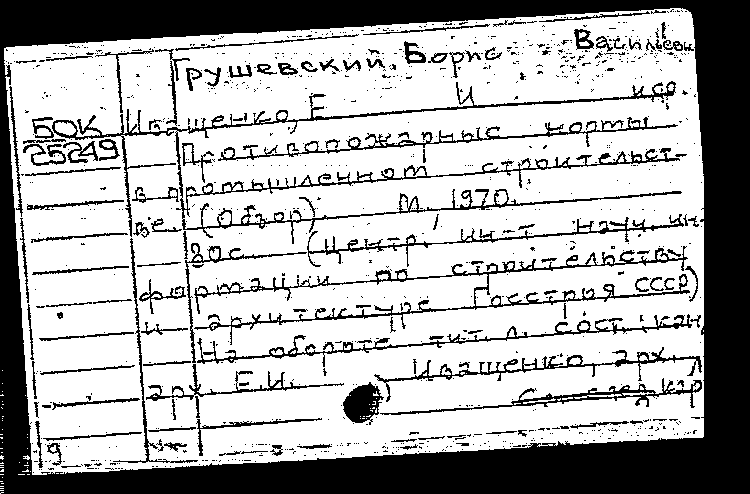 Грушевский, Борис Васильеви
БОК Иващенко, Е И и др.
25249 Противопожарные нормы
в промышленном строительст-
ве. (Обзор). М., 1970.
30 с. (Центр. ин-т науч. ин-
формации по строительству
и архитектуре Госстроя СССР)
На обороте тит. л. сост.: кан.
арх. Е.И. Иващенко, арх.
кар
9